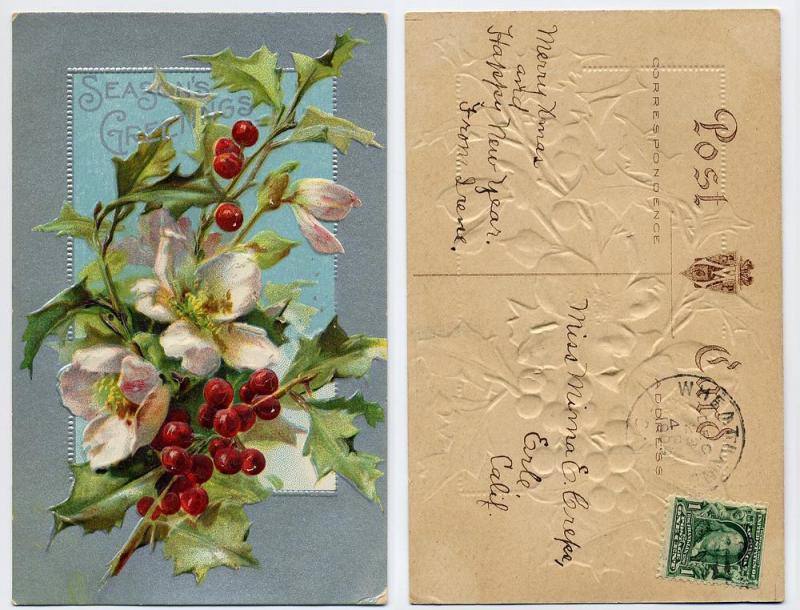 SEASON'S
GREETINGS
POST CARD
CORRESPONDENCE
ADDRESS
Merry Xmas
and
Happy New Year.
From Irene.
Miss Minna E. Crepe,
Erle
Calif.
1
1